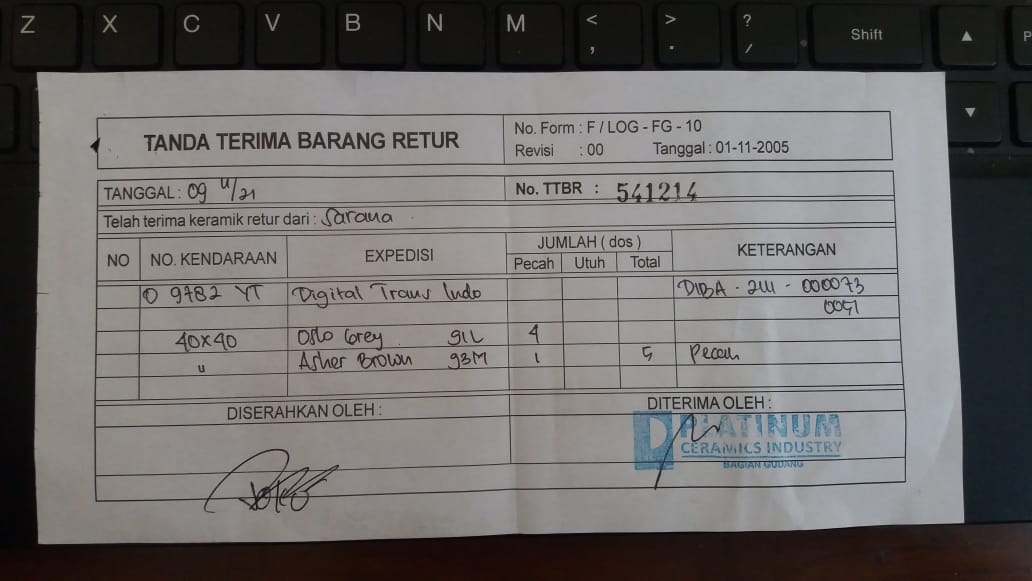 Z X C V B N M < , > . ? / Shift ▲
▼
TANDA TERIMA BARANG RETUR
No. Form : F / LOG - FG - 10
Revisi : 00 Tanggal : 01-11-2005
TANGGAL : 09 4/21
No. TTBR : 541214
Telah terima keramik retur dari : Sarana
NO NO. KENDARAAN EXPEDISI JUMLAH ( dos ) KETERANGAN
Pecah Utuh Total
9782 YT Digital Trans Indo DIBA - 2111 - 000073
0051
40x40 Oslo Grey 91L 4
" Asher Brown 93M 1 5 Pecah
DISERAHKAN OLEH : DITERIMA OLEH :
PLATINUM
CERAMICS INDUSTRY
BAGIAN GUDANG